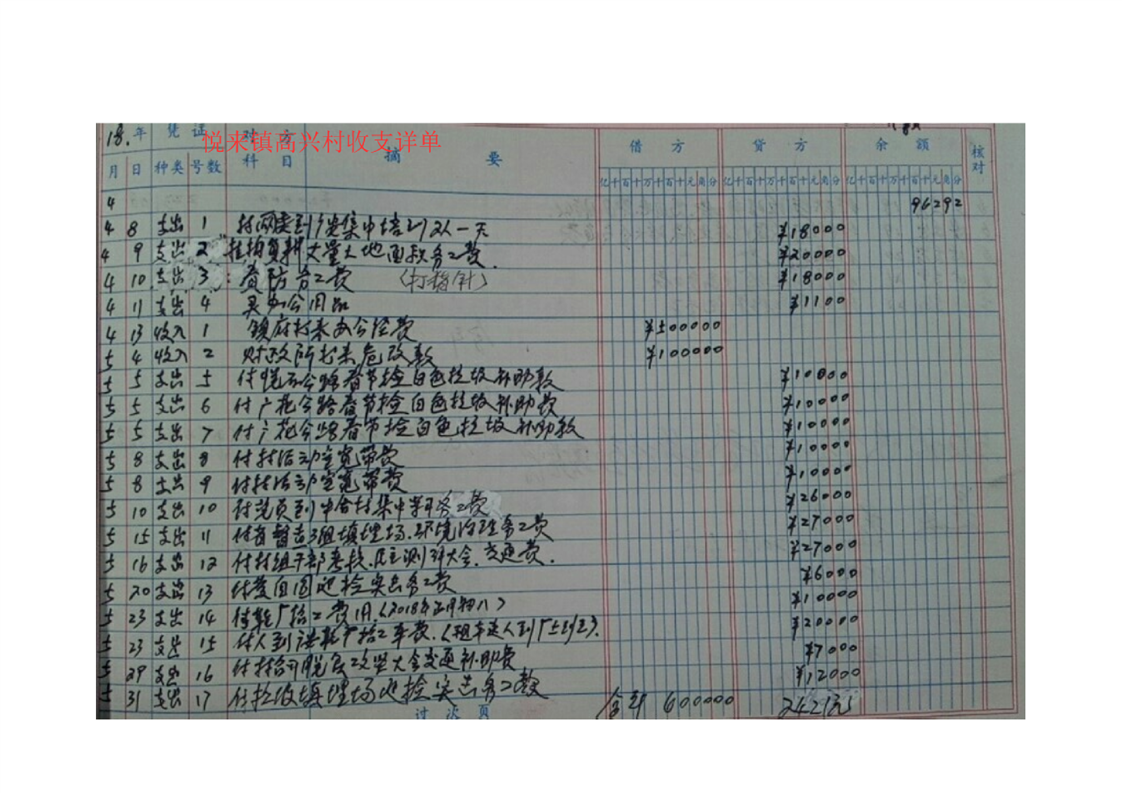 悦来镇高兴村收支详单
18.年 凭证 对方科目 摘要 借方 贷方 余额 核对
月 日 种类 号数 亿千百十万千百十元角分 亿千百十万千百十元角分 亿千百十万千百十元角分
4 96292
4 8 支出 1 集中培训 一天 ¥18000
4 9 支出 2 丈量土地面积务工费 ¥20000
4 10 支出 3 春防务工费 ¥18000
4 11 支出 4 买办公用品 ¥1100
4 13 收入 1 镇府打来办公经费 ¥500000
5 4 收入 2 财政所打来危改款 ¥100000
5 5 支出 5 付悦 公路春节捡白色垃圾补助款 ¥10000
5 5 支出 6 付广花公路春节捡白色垃圾补助费 ¥10000
5 5 支出 7 付广花公路春节捡白色垃圾补助款 ¥10000
5 8 支出 8 付村活动室宽带费 ¥10000
5 8 支出 9 付村活动室宽带费 ¥10000
5 10 支出 10 付党员到 村集中学习务工费 ¥26000
5 15 支出 11 组填埋场.环境治理务工费 ¥27000
5 16 支出 12 付村组干部 民主测评大会.交通费. ¥27000
5 20 支出 13 务工费 ¥6000
5 23 支出 14 费用.(2018年正月初八) ¥10000
5 23 支出 15 车费. ¥20000
5 29 支出 16 付村 脱贫攻坚大会交通补助费 ¥7000
5 31 支出 17 付垃圾填埋场 务工费 ¥12000
过次页 合计 600000 2421元